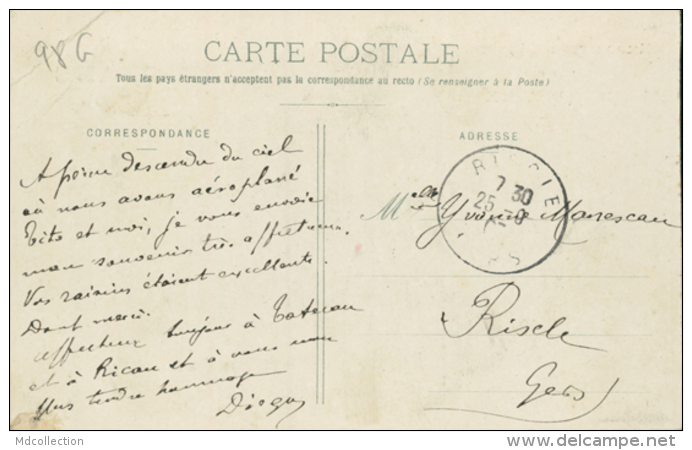 98 G
CARTE POSTALE
Tous les pays étrangers n'acceptent pas la correspondance au recto (Se renseigner à la Poste)
CORRESPONDANCE
A peine descendu du ciel
où nous avons aéroplané
Tito et moi, je vous envoie
mon souvenir très affectueux.
Vos raisins étaient excellents.
Dont merci.
affectueux toujours à
et à Ricau et à vous mon
plus tendre hommage
ADRESSE
7 30
25
Melle Yvonne Manescau
Riscle
Gers
Mdcollection
delcampe.net